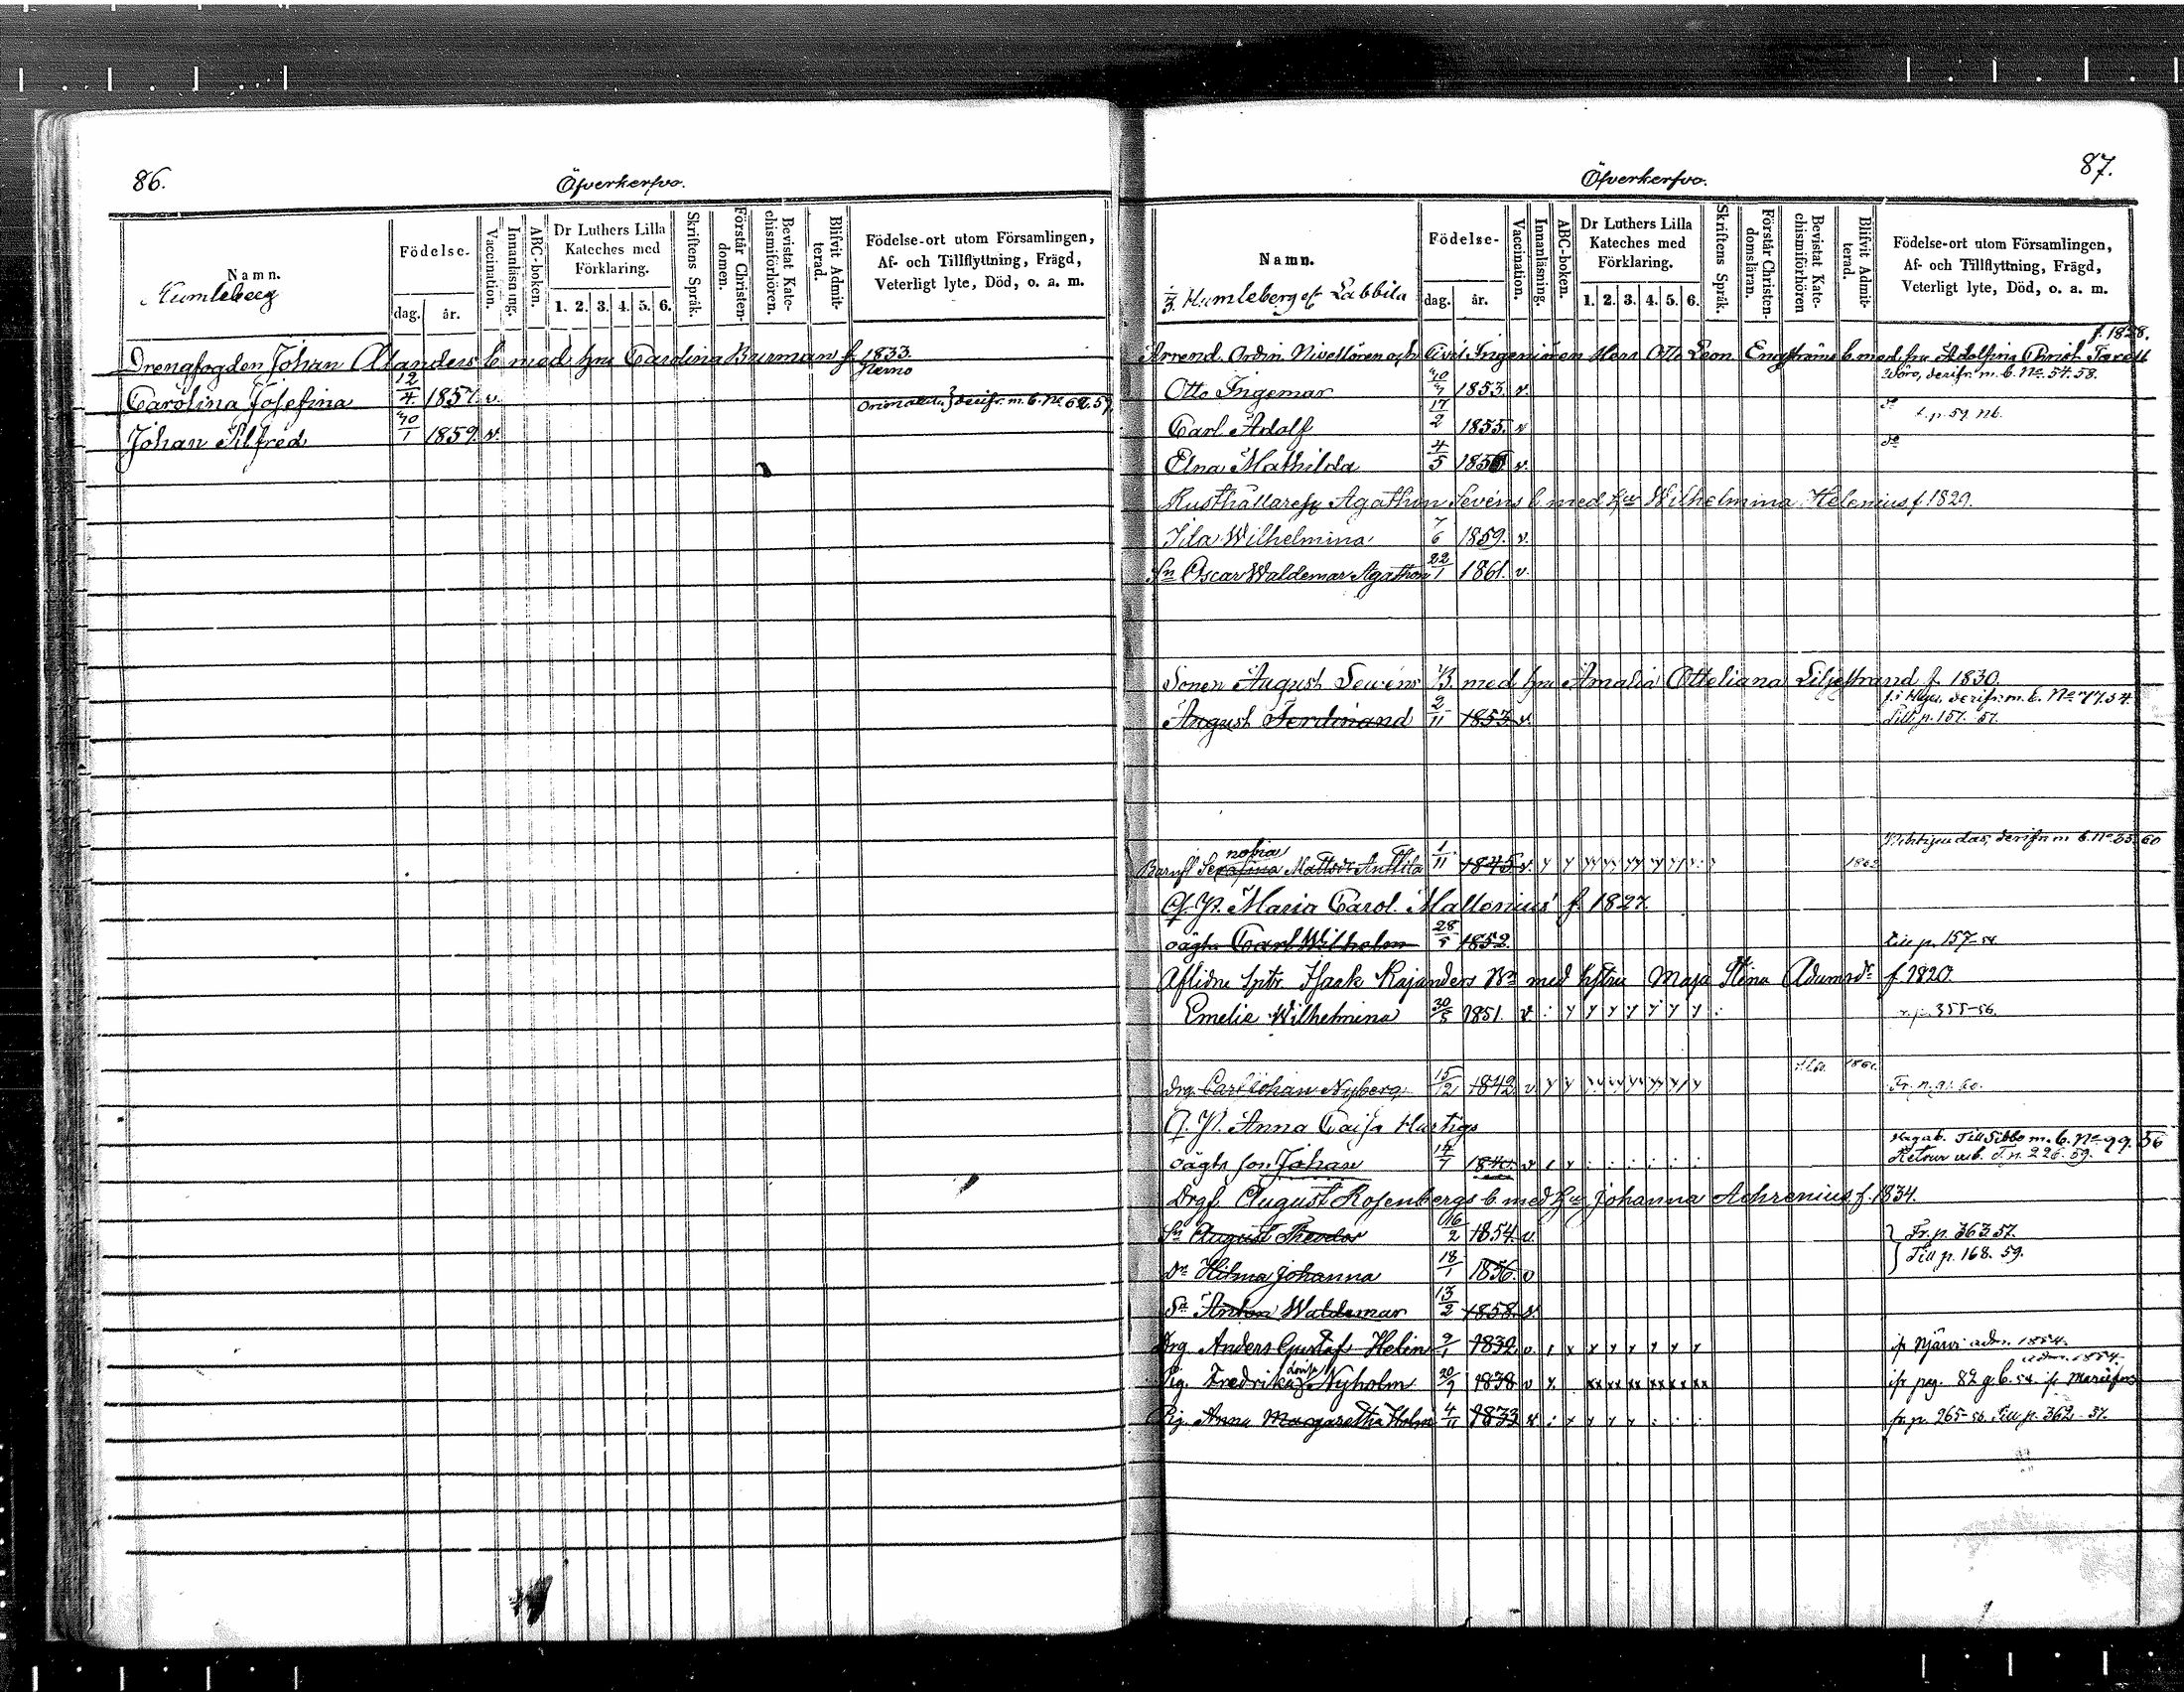 86.
Öfverkerfvo.
Namn.
Humleberg
Födelse-
dag. år.
Vaccination.
Innanläsning.
ABC-boken.
Dr Luthers Lilla
Kateches med
Förklaring.
1. 2. 3. 4. 5. 6.
Skriftens Språk.
Förstår Christen-
domen.
Bevistat Kate-
chismiförhören.
Blifvit Admit-
terad.
Födelse-ort utom Församlingen,
Af- och Tillflyttning, Frägd,
Veterligt lyte, Död, o. a. m.
Drengfogden Johan Alanders b med hru Carolina Burman f. 1833.
Carolina Josefina 12/4 1857. v. derifr. m. b. No 62. 59
Johan Silfred 40/1 1859. v.
87.
Öfverkerfvo.
Namn.
1/3 Humleberg of Labbila
Födelse-
dag. år.
Vaccination.
Innanläsning.
ABC-boken.
Dr Luthers Lilla
Kateches med
Förklaring.
1. 2. 3. 4. 5. 6.
Skriftens Språk.
Förstår Christen-
domsläran.
Bevistat Kate-
chismiförhören
Blifvit Admit-
terad.
Födelse-ort utom Församlingen,
Af- och Tillflyttning, Frägd,
Veterligt lyte, Död, o. a. m.
f. 1828.
Arrend. Ordin. Nivellören och Civil Ingeniören Herr Otto Leon. Engströms b med fru Adolfina Christ.
Wöro, derifr. m. b. No. 54. 58.
Otto Ingemar 1853. v.
Carl Adolf 17/2 1855. v do
Elna Mathilda 4/5 1856 v. do
Rusthållaren Agathon Sevéns b med hru Wilhelmina Helenius f 1829.
Wilhelmina 7/6 1859. v.
Sn Oscar Waldemar Agathon 22/1 1861. v.
Sonen August Sevéns B. med hru Amalia Otteliana Liljestrand f. 1830.
derifr. m. b. No 77. 54.
August Ferdinand 2/11 1853 v. Till p. 157. 57.
derifr m b. No 35. 60
nobia
Barnfl Serafina Mattsdr Anttila 1/11 1845 v. y y yy yy yy yy yy
Q. P. Maria Carol. Mallenius f. 1827.
oägta Carl Wilhelm 28/5 1852. till p. 157-54
Aflidne Sptr. Isaak Rajanders Bn med hstru Maja Stina Adamsdr f. 1820.
Emelie Wilhelmina 30/5 1851. v. : y y y y y y y : 355-56.
Drg. Carl Johan Nyberg 15/12 1842 v y y
Q. P. Anna Caisa Hurtigs
Till Sibbo m. b. No 99. 56
oägta son Johan 1840. v Retour
Drgf. August Rosenbergs b med hru Johanna Achrenius f. 1834.
Sn August Theodor 16/2 1854 v. Fr. p. 363. 57.
Dr Hilma Johanna 18/1 1856. v Till p. 168. 59.
Sn Anton Waldemar 13/2 1858. v.
Drg Anders Gustaf Helin 9/1 1832. v adm. 1854.
adm. 1854.
Pig. Fredrika Lovisa Nyholm 20/9 1838 v x xx xx xx xx xx xx
Pig. Anna Margaretha Holm 4/11 1833 v : x y y y : : : fr p. 265-56. till p. 362. 57.